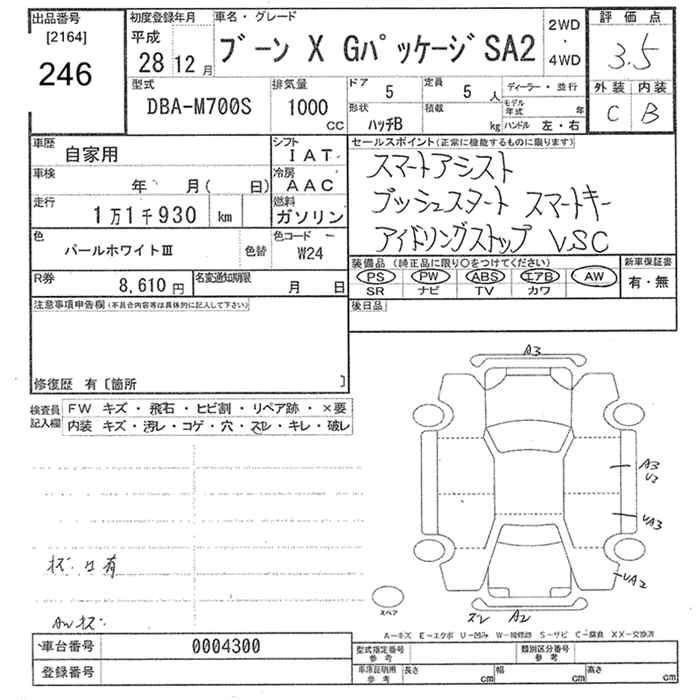 出品番号 初度登録年月 車名・グレード 評価点
[2164] 平成 ブーン X Gパッケージ SA2 2WD・4WD 3.5
246 28 12月
型式 排気量 ドア 5 定員 5人 ディーラー・並行 外装 内装
DBA-M700S 1000 CC 形状 ハッチB 積載 kg モデル年式 年 C B
ハンドル 左・右
車歴 自家用 シフト IAT セールスポイント(正常に機能するものに限ります)
車検 年 月( 日) 冷房 AAC スマートアシスト
走行 1万1千930 km 燃料 ガソリン プッシュスタート スマートキー
色 パールホワイトⅢ 色替 色コード W24 アイドリングストップ VSC
R券 8,610円 名変通知期限 月 日 装備品(純正品に限り○をつけてください) 新車保証書
PS PW ABS エアB AW 有・無
SR ナビ TV カワ
注意事項申告欄(不具合内容等は具体的に記入して下さい) 後日品
修復歴 有〔箇所 〕
検査員記入欄 FW キズ・飛石・ヒビ割・リペア跡・×要
内装 キズ・汚レ・コゲ・穴・スレ・キレ・破レ
A3
A3
U2
UA3
UA2
スレ A2
スペア
A-キズ E-エクボ U-凹み W-補修跡 S-サビ C-腐食 XX-交換済
車台番号 0004300 型式指定番号 参考 類別区分番号 参考
登録番号 車庫証明用 参考 長さ cm 幅 cm 高さ cm